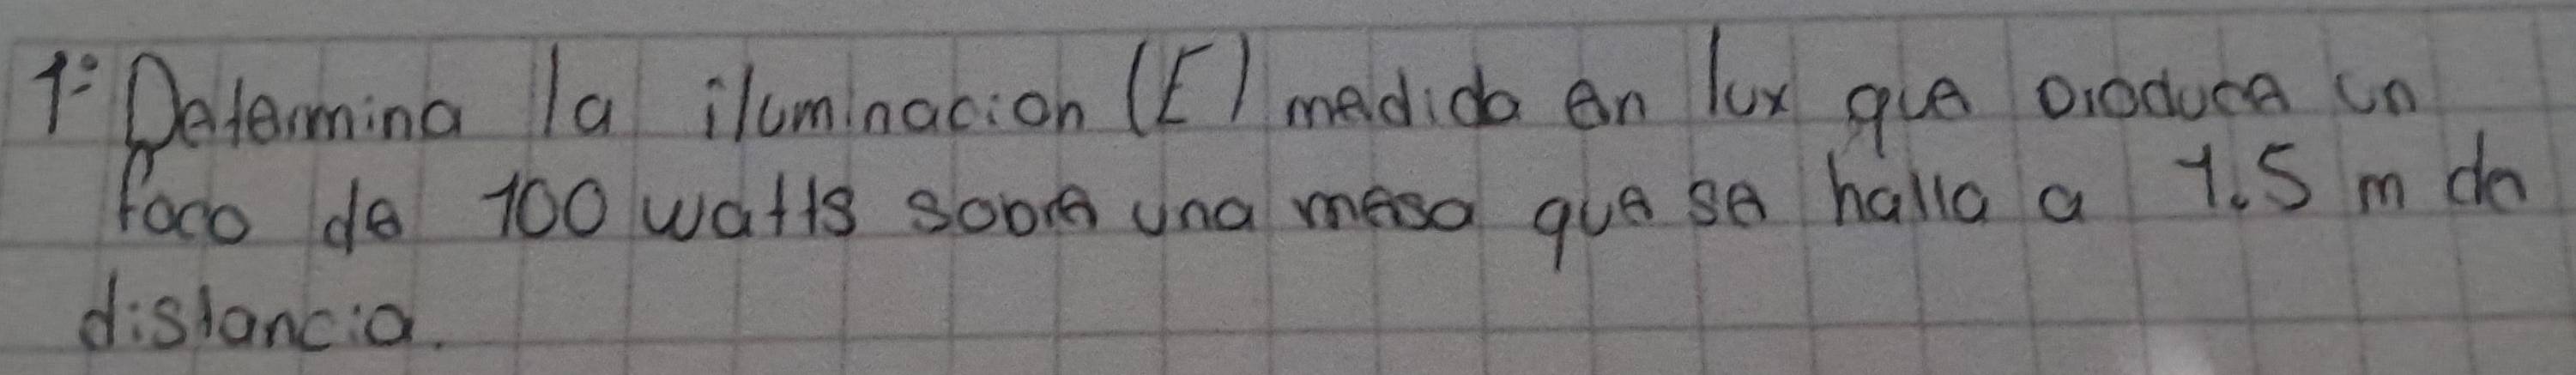 1: Determina la iluminacion (E) medida en lux que produce un
foco de 100 watts sobre una mesa que se halla a 1.5 m de
distancia.